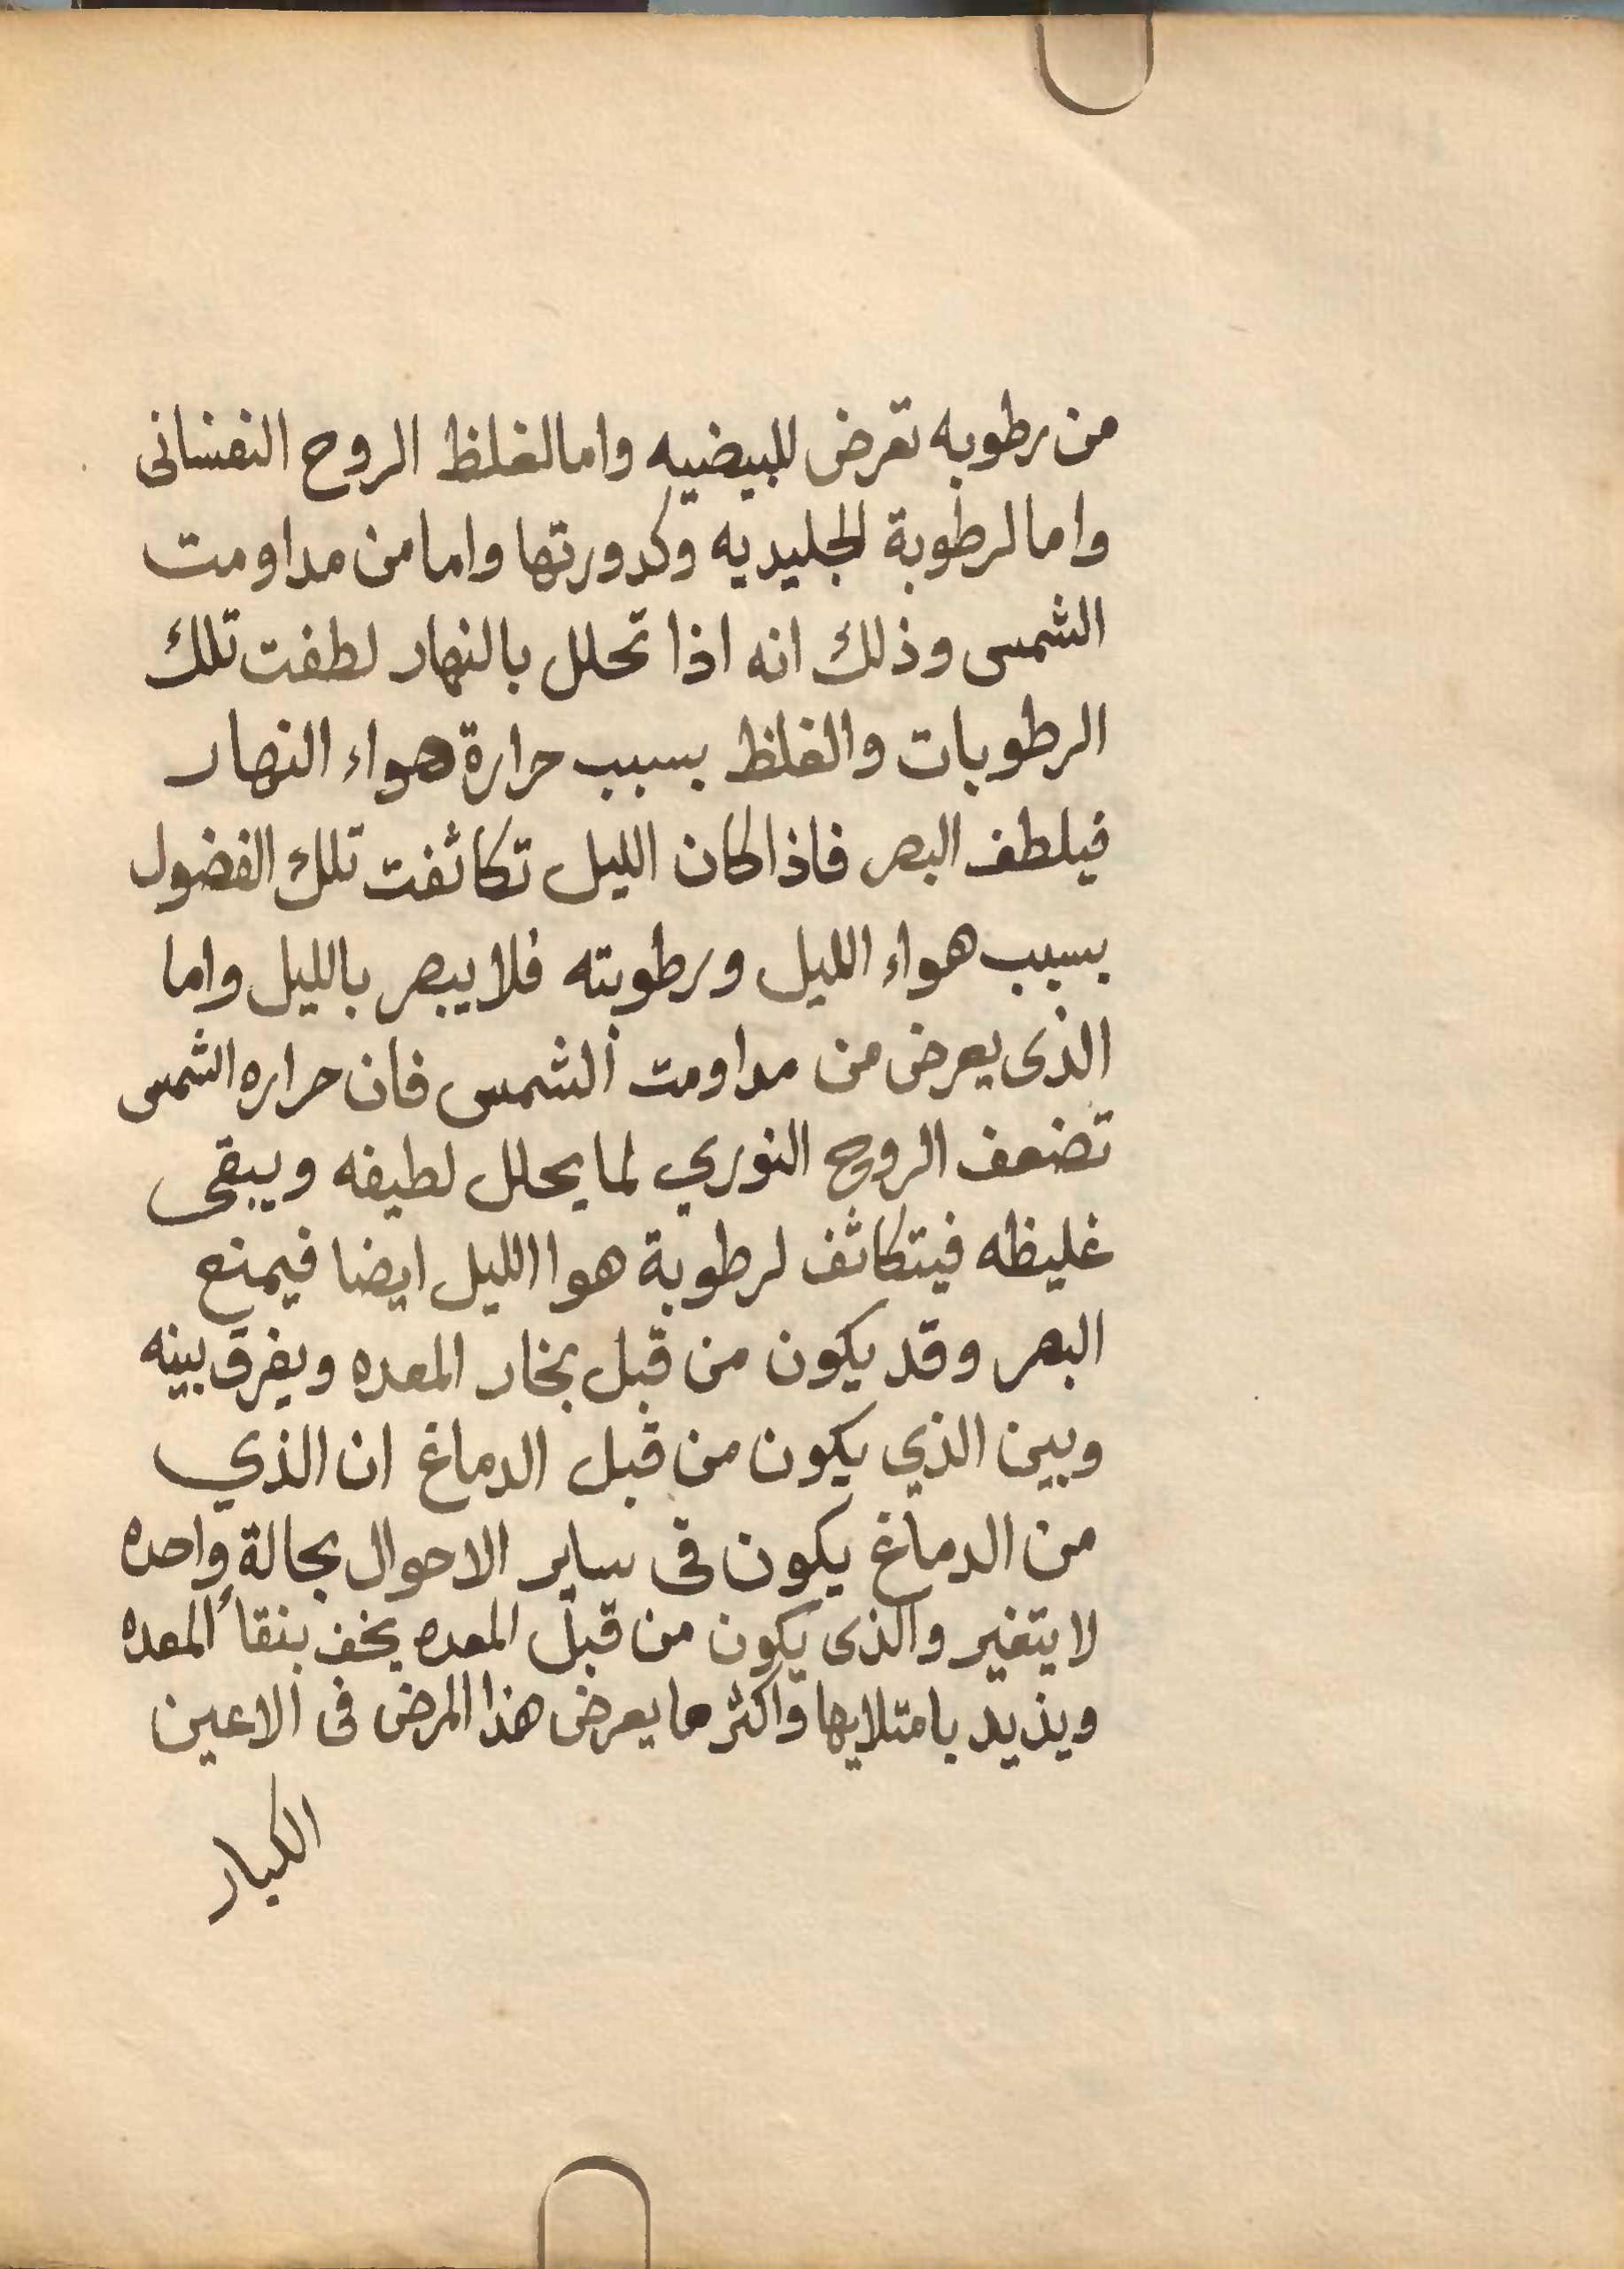 من رطوبه تعرض للبيضيه واما لغلظ الروح النفسانى
واما لرطوبة الجليديه وكدورتها واما من مداومت
الشمس وذلك انه اذا تحلل بالنهار لطفت تلك
الرطوبات والغلظ بسبب حرارة هواء النهار
فيلطف البصر فاذا كان الليل تكاثفت تلك الفضول
بسبب هواء الليل ورطوبته فلا يبصر بالليل واما
الذى يعرض من مداومت الشمس فان حراره الشمس
تضعف الروح النوري لما يحلل لطيفه ويبقى
غليظه فيتكاثف لرطوبة هوا الليل ايضا فيمنع
البصر وقد يكون من قبل بخار المعده ويفرق بينه
وبين الذي يكون من قبل الدماغ ان الذي
من الدماغ يكون فى ساير الاحوال بحالة واحده
لا يتغير والذى يكون من قبل المعده يخف بنقأ المعده
ويذيد بامتلايها واكثر ما يعرض هذا المرض فى الاعين
الكبار